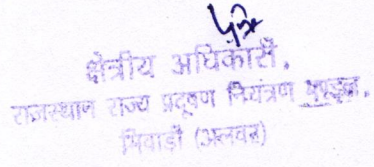 क्षेत्रीय अधिकारी,
राजस्थान राज्य प्रदूषण नियंत्रण मण्डल,
भिवाड़ी (अलवर)